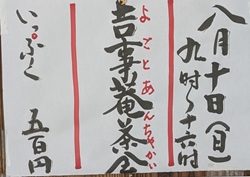 八月十日(日)
九時〜十六時
よごとあんちゃかい
吉事菴茶会
いっぷく 五百円